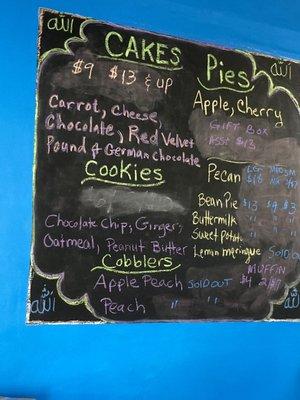 الله
الله
CAKES
$9 $13 & up
Carrot, Cheese,
Chocolate, Red Velvet
Pound & German chocolate
Cookies
Chocolate Chip, Ginger,
Oatmeal, Peanut Butter
Cobblers
Apple Peach SOLD OUT
Peach " "
Pies
Apple, Cherry
GIFT BOX
ASST $13
Pecan
Bean Pie $13 $9 $3
Buttermilk " " "
Sweet potato " " "
Lemon meringue Sold
MUFFIN
$4
الله
الله